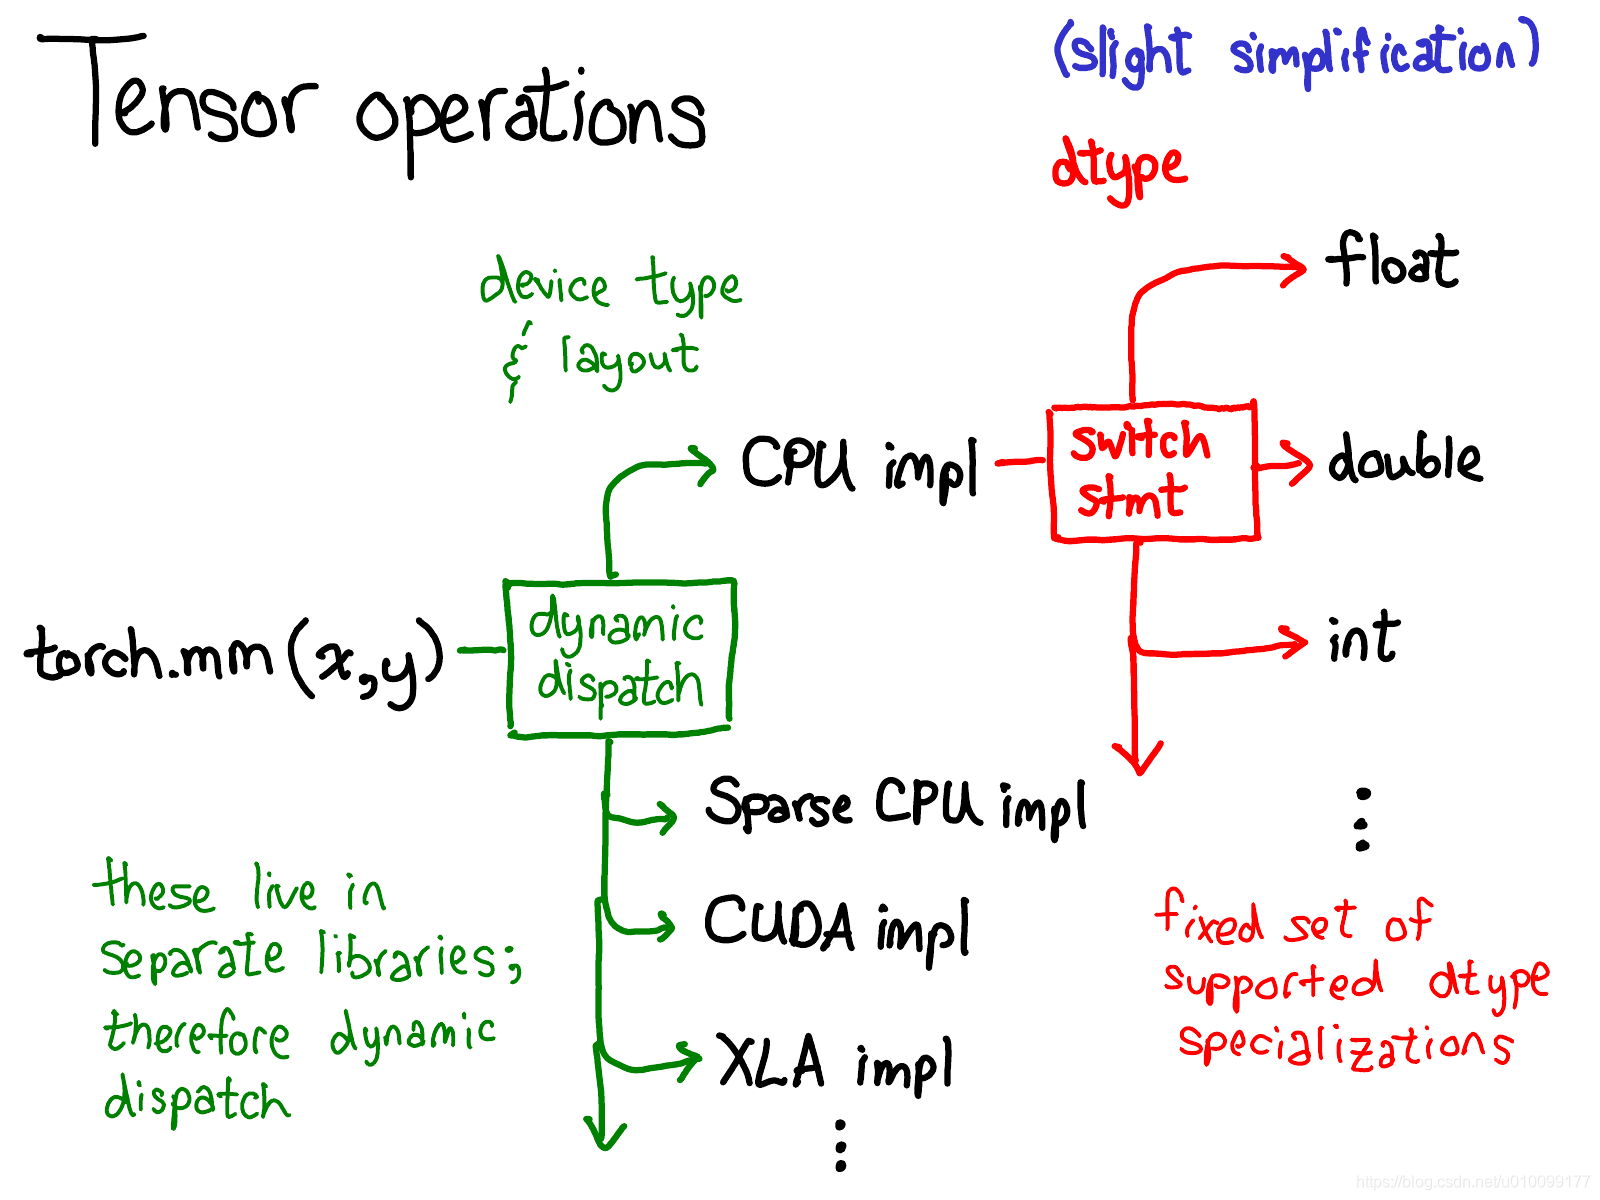 Tensor operations
(slight simplification)
dtype
device type
& layout
float
CPU impl
switch
stmt
double
torch.mm(x,y)
dynamic
dispatch
int
Sparse CPU impl
CUDA impl
XLA impl
these live in
separate libraries;
therefore dynamic
dispatch
fixed set of
supported dtype
specializations
https://blog.csdn.net/u010099177